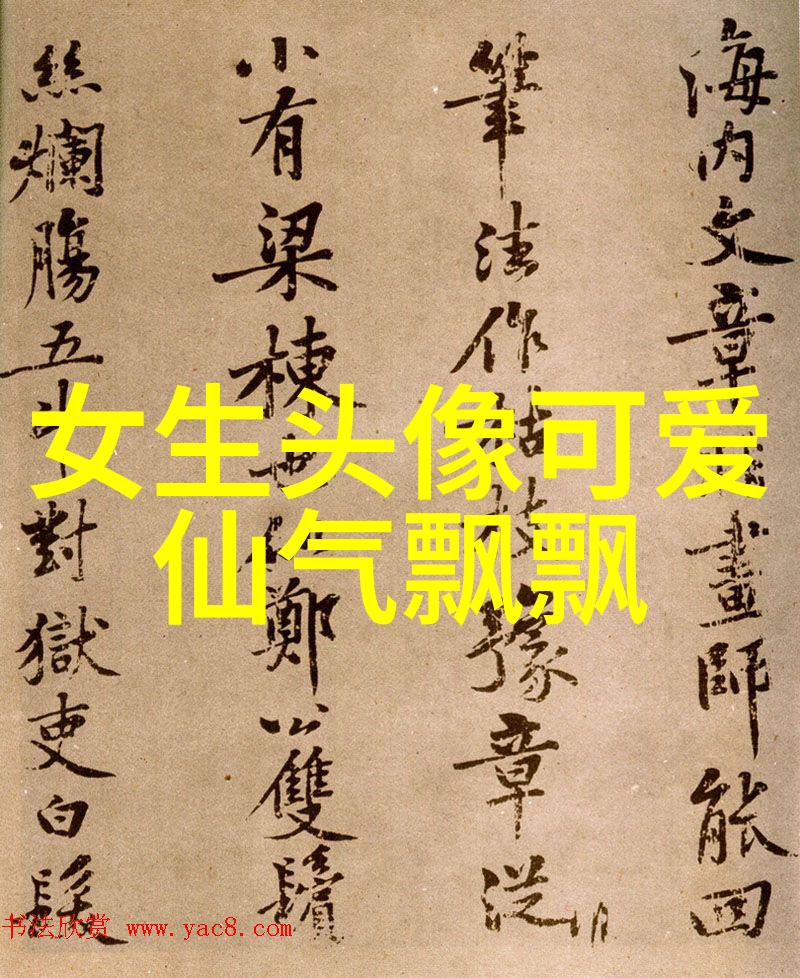 海内文章畫師能回
筆法作枯枝豫章従
小有梁棟也鄭公雙鬢
絲爛腸五斗對獄吏白髮
女生头像可爱
仙气飘飘
书法欣赏 www.yac8.com